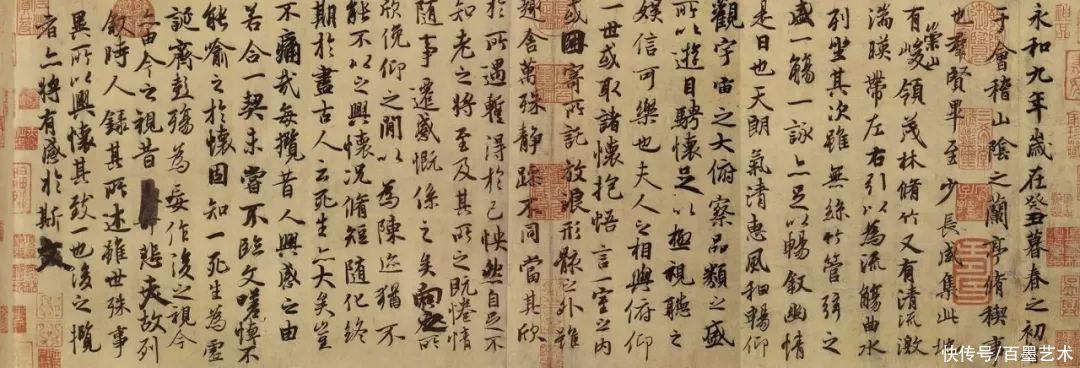 永和九年歲在癸丑暮春之初
于會稽山陰之蘭亭脩稧事
也羣賢畢至少長咸集此地
有崇山峻領茂林脩竹又有清流激
湍暎帶左右引以為流觴曲水
列坐其次雖無絲竹管弦之
盛一觴一詠亦足以暢敘幽情
是日也天朗氣清惠風和暢仰
觀宇宙之大俯察品類之盛
所以遊目騁懷足以極視聽之
娛信可樂也夫人之相與俯仰
一世或取諸懷抱悟言一室之內
或因寄所託放浪形骸之外雖
趣舍萬殊靜躁不同當其欣
於所遇蹔得於己怏然自足不
知老之將至及其所之既惓情
隨事遷感慨係之矣向之所
欣俛仰之閒以為陳迹猶不
能不以之興懷況脩短隨化終
期於盡古人云死生亦大矣豈
不痛哉每攬昔人興感之由
若合一契未嘗不臨文嗟悼不
能喻之於懷固知一死生為虛
誕齊彭殤為妄作後之視今
亦由今之視昔悲夫故列
敘時人錄其所述雖世殊事
異所以興懷其致一也後之攬
者亦將有感於斯文
快传号/百墨艺术